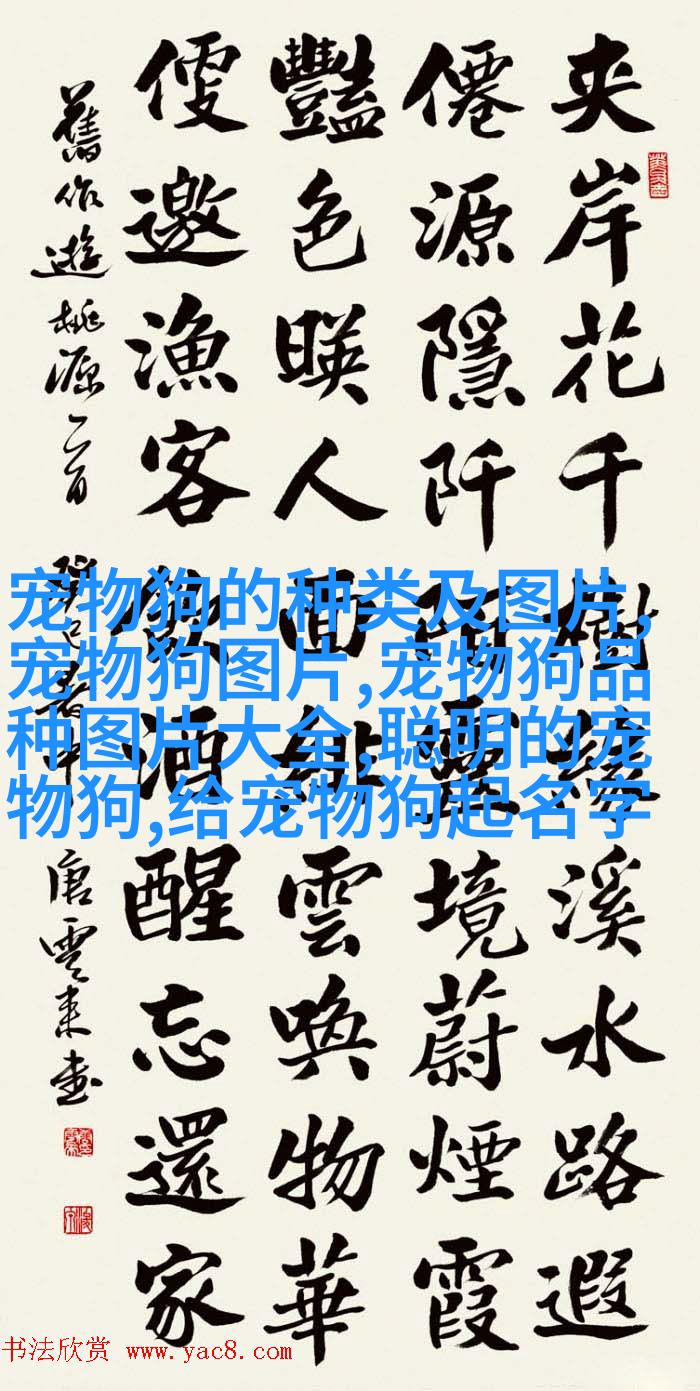 夾岸花千樹緣溪水路遐
僊源隱阡靈境蔚煙霞
豔色暎人面雲喚物華
便邀漁客飲酒醒忘還家
舊作遊桃源二首
唐雲來書
宠物狗的种类及图片,
宠物狗图片,宠物狗品
种图片大全,聪明的宠
物狗,给宠物狗起名字
书法欣赏 www.yac8.com